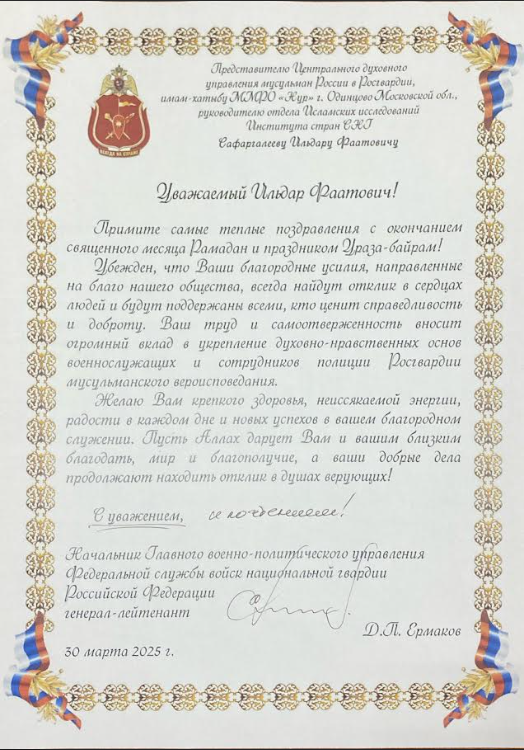 Представителю Центрального духовного
управления мусульман России в Росгвардии,
имам-хатибу ММРО «Нур» г. Одинцово Московской обл.,
руководителю отдела Исламских исследований
Института стран СНГ
Сафаргалееву Ильдару Фаатовичу
ВСЕГДА НА СТРАЖЕ
Уважаемый Ильдар Фаатович!
Примите самые теплые поздравления с окончанием
священного месяца Рамадан и праздником Ураза-байрам!
Убежден, что Ваши благородные усилия, направленные
на благо нашего общества, всегда найдут отклик в сердцах
людей и будут поддержаны всеми, кто ценит справедливость
и доброту. Ваш труд и самоотверженность вносит
огромный вклад в укрепление духовно-нравственных основ
военнослужащих и сотрудников полиции Росгвардии
мусульманского вероисповедания.
Желаю Вам крепкого здоровья, неиссякаемой энергии,
радости в каждом дне и новых успехов в вашем благородном
служении. Пусть Аллах дарует Вам и вашим близким
благодать, мир и благополучие, а ваши добрые дела
продолжают находить отклик в душах верующих!
С уважением, и почтением!
Начальник Главного военно-политического управления
Федеральной службы войск национальной гвардии
Российской Федерации
генерал-лейтенант
Д.П. Ермаков
30 марта 2025 г.